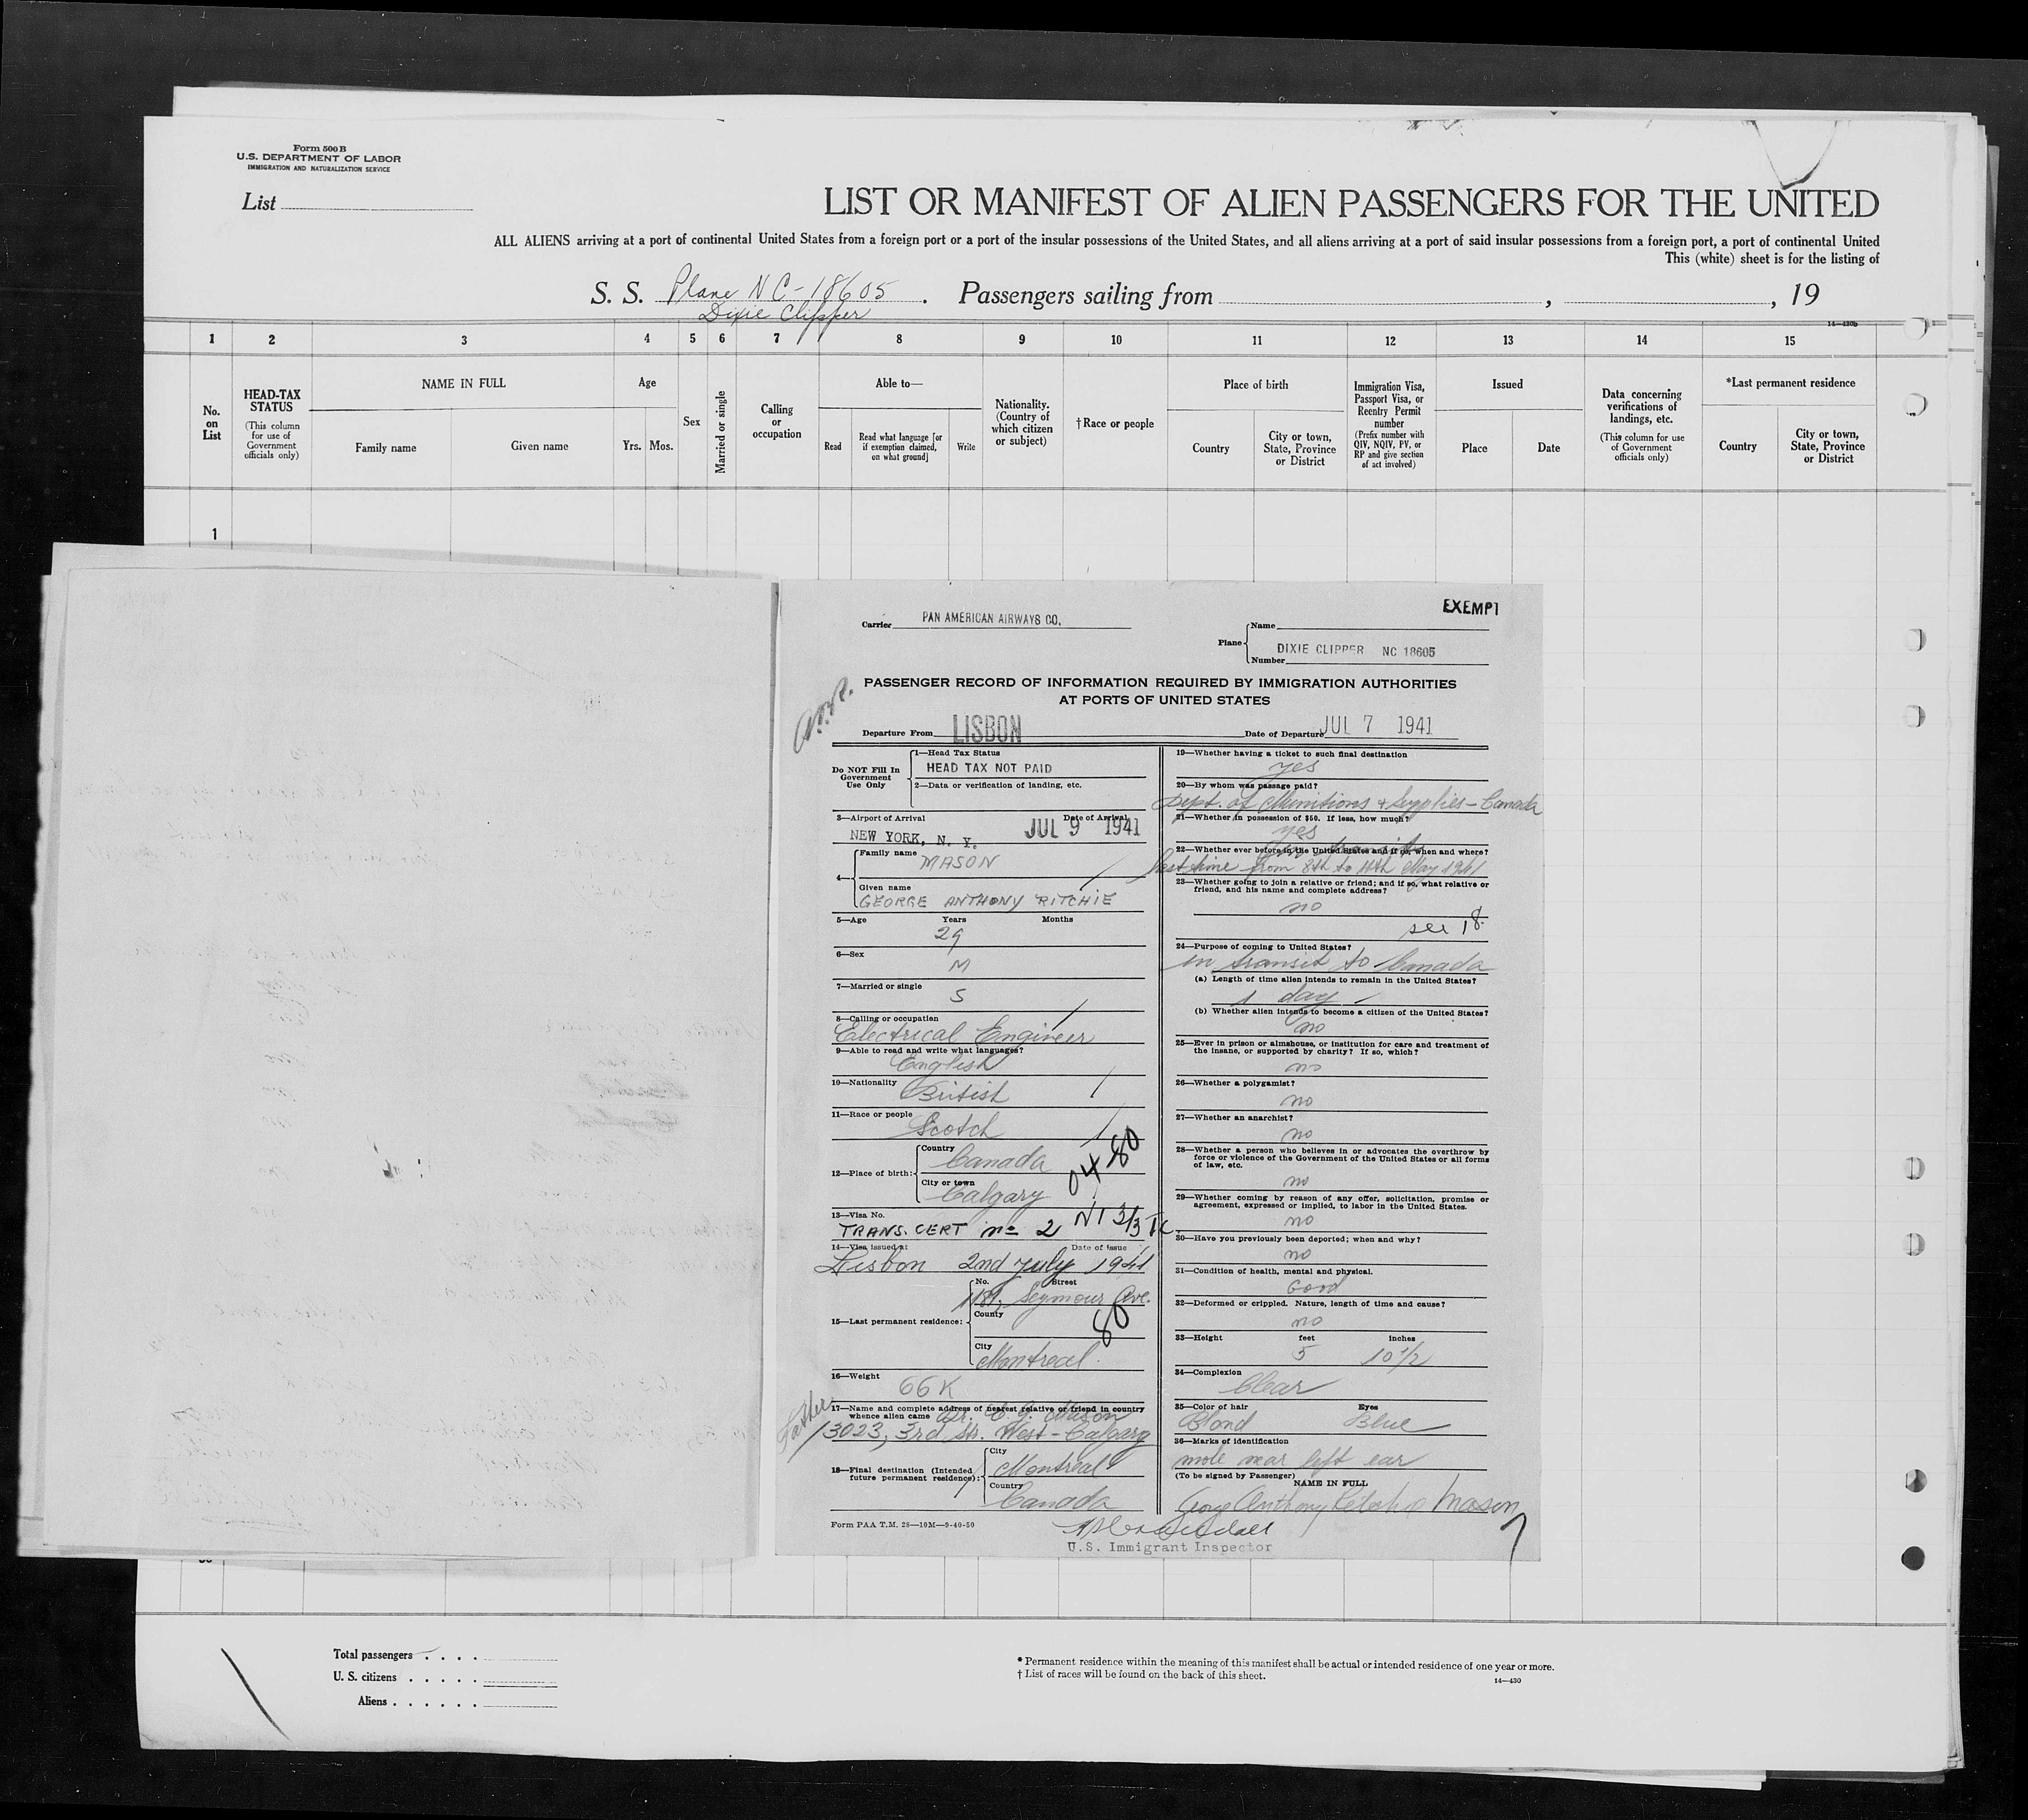 Form 500 B
U.S. DEPARTMENT OF LABOR
IMMIGRATION AND NATURALIZATION SERVICE
List
LIST OR MANIFEST OF ALIEN PASSENGERS FOR THE UNITED
ALL ALIENS arriving at a port of continental United States from a foreign port or a port of the insular possessions of the United States, and all aliens arriving at a port of said insular possessions from a foreign port, a port of continental United
This (white) sheet is for the listing of
S. S. Plane NC-18605. Passengers sailing from , , 19
Dixie Clipper
14—430b
1 2 3 4 5 6 7 8 9 10 11 12 13 14 15
No. on List
HEAD-TAX STATUS
(This column for use of Government officials only)
NAME IN FULL
Family name
Given name
Age
Yrs. Mos.
Sex
Married or single
Calling or occupation
Able to—
Read
Read what language [or if exemption claimed, on what ground]
Write
Nationality. (Country of which citizen or subject)
†Race or people
Place of birth
Country
City or town, State, Province or District
Immigration Visa, Passport Visa, or Reentry Permit number
(Prefix number with QIV, NQIV, PV, or RP and give section of act involved)
Issued
Place
Date
Data concerning verifications of landings, etc.
(This column for use of Government officials only)
*Last permanent residence
Country
City or town, State, Province or District
1
EXEMPT
Carrier PAN AMERICAN AIRWAYS CO.
Plane Name
DIXIE CLIPPER NC 18605
Number
PASSENGER RECORD OF INFORMATION REQUIRED BY IMMIGRATION AUTHORITIES
AT PORTS OF UNITED STATES
Departure From LISBON Date of Departure JUL 7 1941
Do NOT Fill In Government Use Only
1—Head Tax Status
HEAD TAX NOT PAID
2—Data or verification of landing, etc.
3—Airport of Arrival Date of Arrival
NEW YORK, N. Y. JUL 9 1941
4— Family name MASON
Given name
GEORGE ANTHONY RITCHIE
5—Age Years Months
29
6—Sex
M
7—Married or single
S
8—Calling or occupation
Electrical Engineer
9—Able to read and write what languages?
English
10—Nationality
British
11—Race or people
Scotch
12—Place of birth: Country
Canada
City or town
Calgary
04 80
13—Visa No.
TRANS. CERT no 2 NI 3/3
14—Visa issued at Date of issue
Lisbon 2nd July 1941
15—Last permanent residence: No. Street
1189, Seymour Ave.
County
80
City
Montreal.
16—Weight
66 K
17—Name and complete address of nearest relative or friend in country
whence alien came Mason
Father
3023, 3rd Str. West - Calgary
18—Final destination (Intended future permanent residence): City
Montreal
Country
Canada
Form PAA T.M. 28—10M—9-40-50
19—Whether having a ticket to such final destination
yes
20—By whom was passage paid?
Dept. of Munitions & Supplies - Canada
21—Whether in possession of $50. If less, how much?
yes
22—Whether ever before in the United States and if so, when and where?
last time from 8th to 11th May 1941
23—Whether going to join a relative or friend; and if so, what relative or
friend, and his name and complete address?
no
see 18.
24—Purpose of coming to United States?
in transit to Canada
(a) Length of time alien intends to remain in the United States?
1 day
(b) Whether alien intends to become a citizen of the United States?
no
25—Ever in prison or almshouse, or institution for care and treatment of
the insane, or supported by charity? If so, which?
no
26—Whether a polygamist?
no
27—Whether an anarchist?
no
28—Whether a person who believes in or advocates the overthrow by
force or violence of the Government of the United States or all forms
of law, etc.
no
29—Whether coming by reason of any offer, solicitation, promise or
agreement, expressed or implied, to labor in the United States.
no
30—Have you previously been deported; when and why?
no
31—Condition of health, mental and physical.
Good
32—Deformed or crippled. Nature, length of time and cause?
no
33—Height feet inches
5 10½
34—Complexion
Clear
35—Color of hair Eyes
Blond Blue
36—Marks of identification
mole near left ear
(To be signed by Passenger)
NAME IN FULL
George Anthony Ritchie Mason
7
U.S. Immigrant Inspector
Total passengers . . . .
U. S. citizens . . . . .
Aliens . . . . . .
* Permanent residence within the meaning of this manifest shall be actual or intended residence of one year or more.
† List of races will be found on the back of this sheet.
14—430